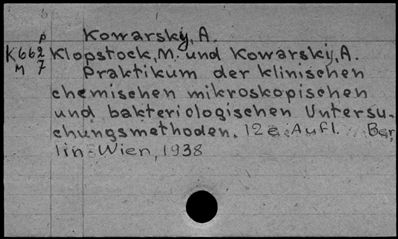 Kowarsky, A.
P
K662 Klopstock, M. und Kowarskij, A.
M 7 Praktikum der klinischen
chemischen mikroskopischen
und bakteriologischen Untersu-
chungsmethoden. 12e Aufl. Ber,
lin-Wien, 1938